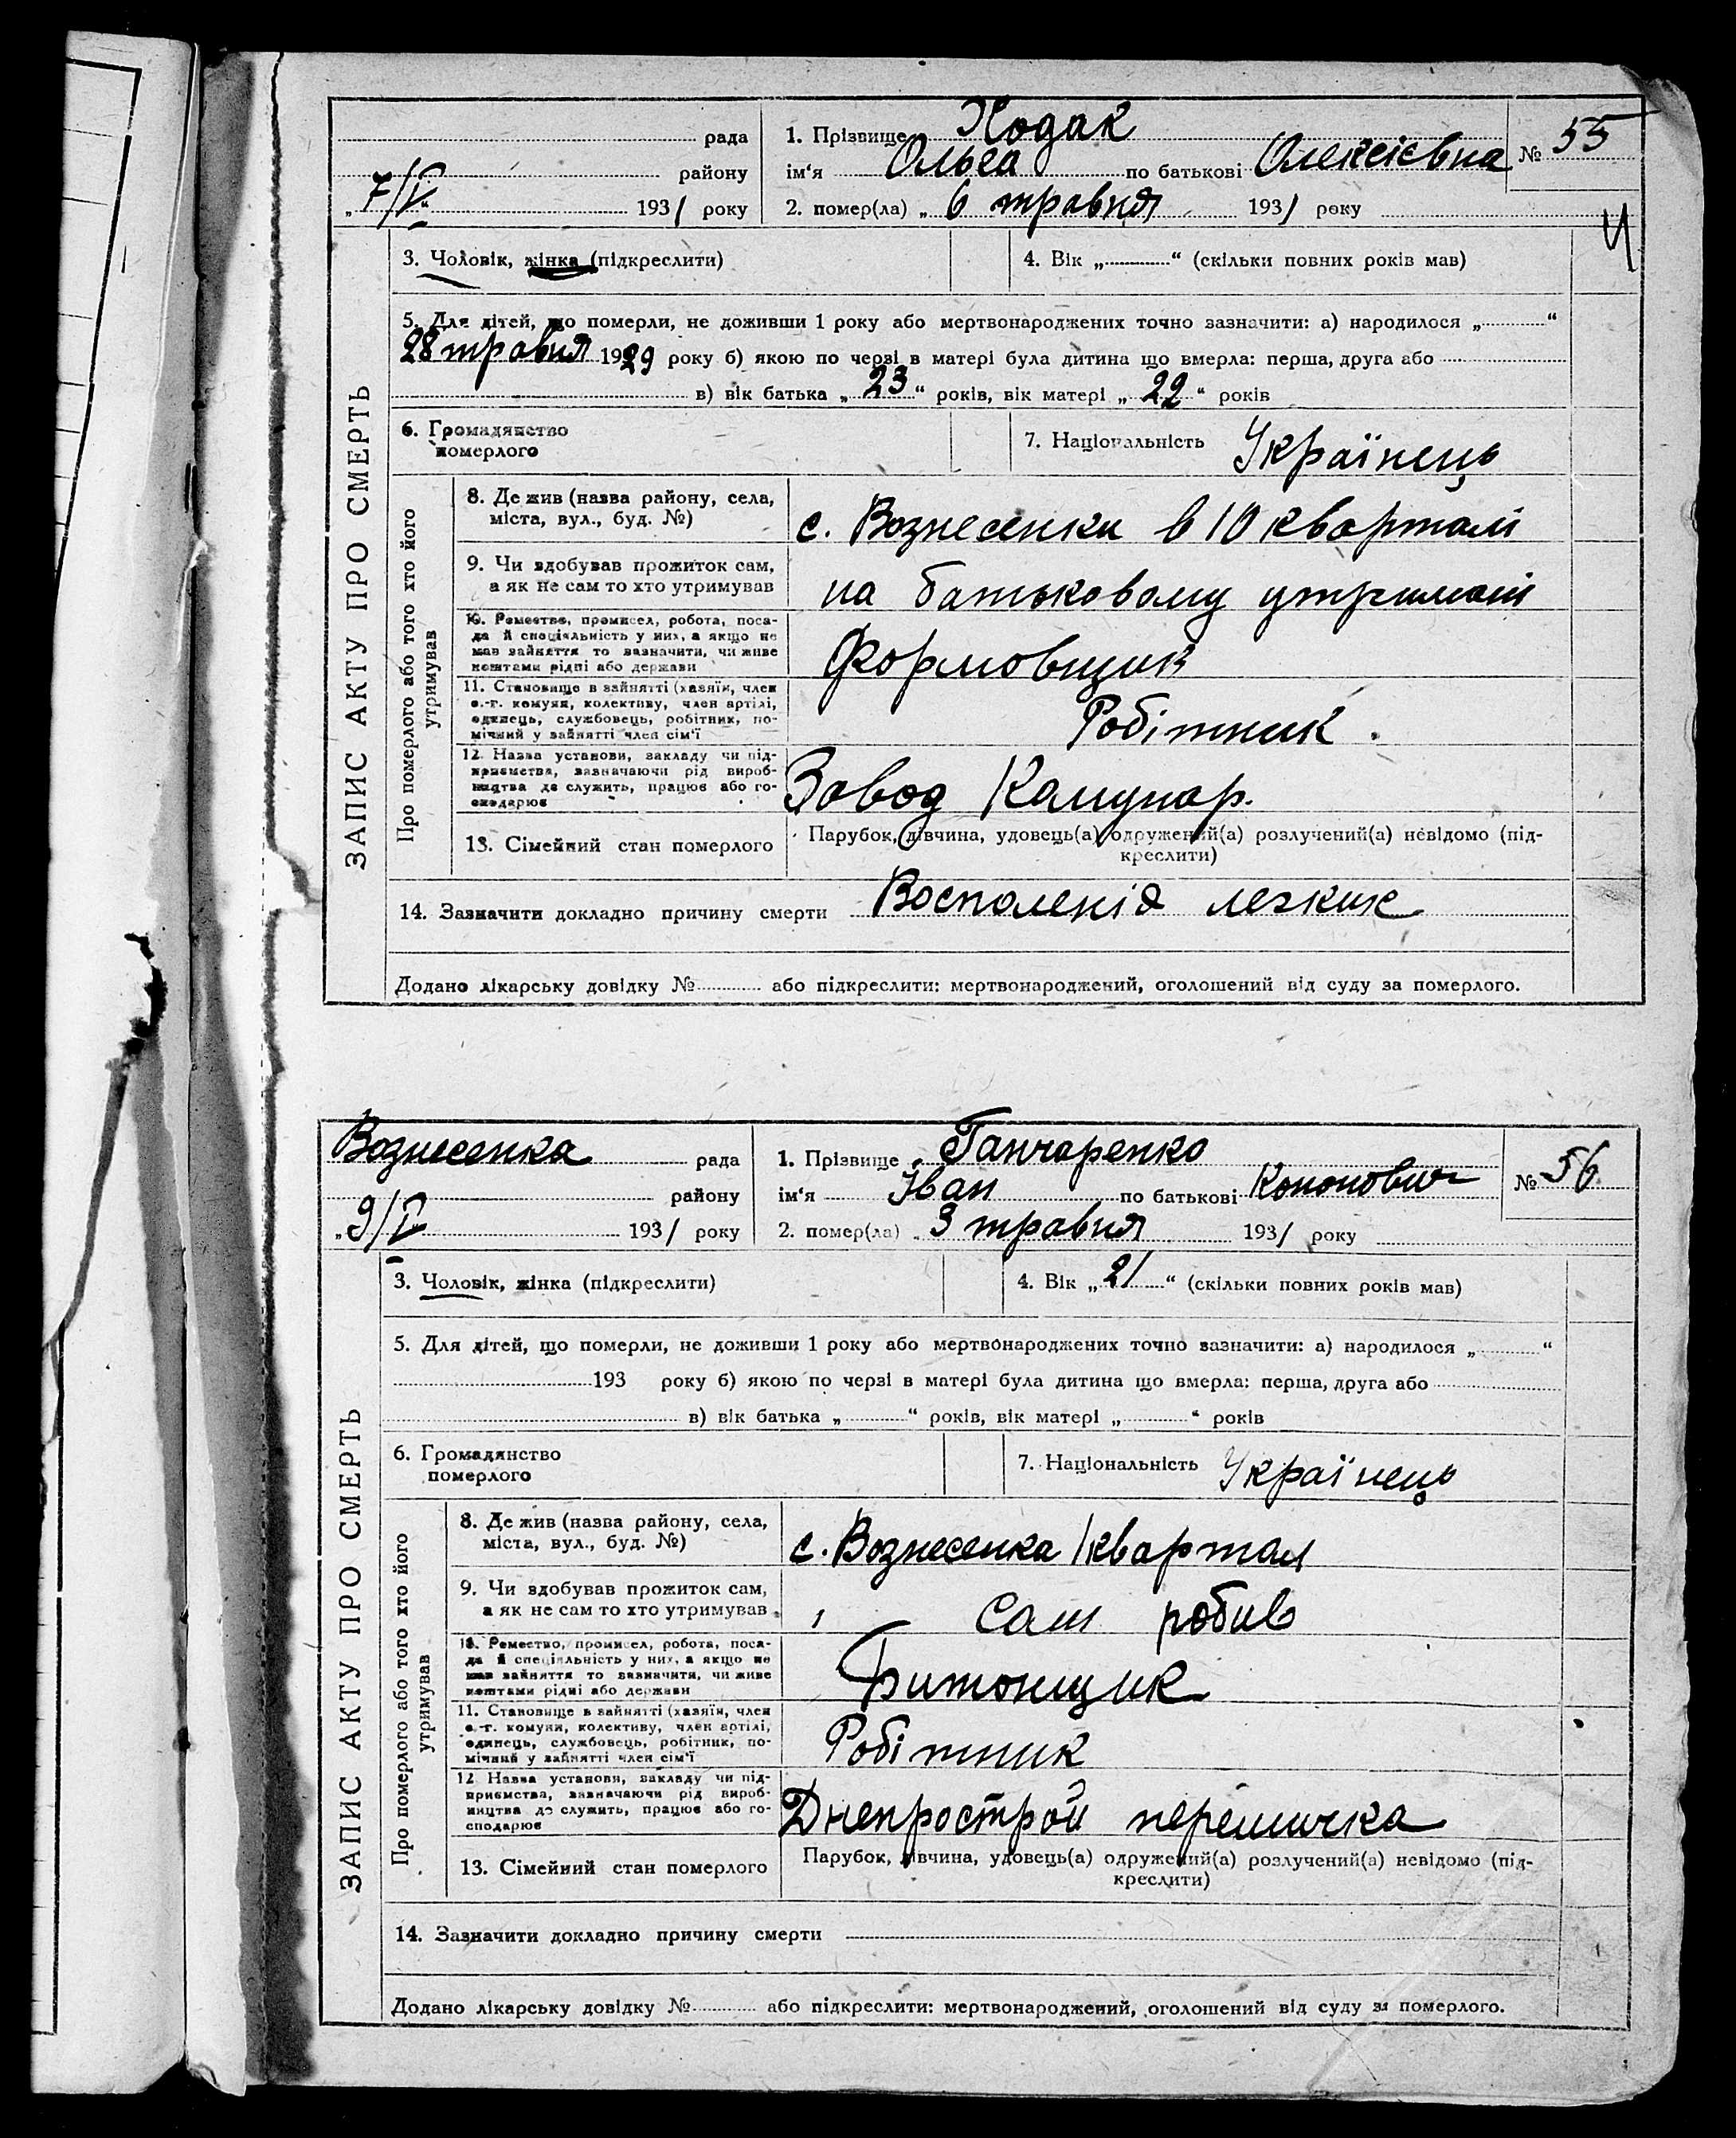 рада
1. Прізвище Ходак
№ 55
району
ім'я Ольга по батькові Олексієвна
„7/V“ 1931 року
2. помер(ла) „ 6 травня 1931 року
3. Чоловік, жінка (підкреслити)
4. Вік „ “ (скільки повних років мав)
5. Для дітей, що померли, не доживши 1 року або мертвонароджених точно зазначити: а) народилося „ “
28 травня 1929 року б) якою по черзі в матері була дитина що вмерла: перша, друга або
в) вік батька „ 23 “ років, вік матері „ 22 “ років
6. Громадянство
померлого
7. Національність Українець
ЗАПИС АКТУ ПРО СМЕРТЬ
Про померлого або того хто його
утримував
8. Де жив (назва району, села,
міста, вул., буд. №)
с. Вознесенки в 10 кварталі
9. Чи здобував прожиток сам,
а як не сам то хто утримував
на батьковому утриманні
10. Ремество, промисел, робота, поса-
да й спеціяльність у них, а якщо не
мав зайняття то зазначити, чи живе
коштами рідні або держави
Формовщик
11. Становище в зайнятті (хазяїн, член
с.-г. комуни, колективу, член артілі,
одинець, службовець, робітник, по-
мічний у зайнятті член сім'ї
Робітник.
12. Назва установи, закладу чи під-
приємства, зазначаючи рід вироб-
ництва де служить, працює або го-
сподарює
Завод Комунар.
13. Сімейний стан померлого
Парубок, дівчина, удовець(а) одружений(а) розлучений(а) невідомо (під-
креслити)
14. Зазначити докладно причину смерти Воспаленія легких
Додано лікарську довідку № або підкреслити: мертвонароджений, оголошений від суду за померлого.
Вознесенка рада
1. Прізвище Ганчаренко
№ 56
району
ім'я Іван по батькові Кононович
„9/V 1931 року
2. помер(ла) „ 3 травня 1931 року
3. Чоловік, жінка (підкреслити)
4. Вік „ 21 “ (скільки повних років мав)
5. Для дітей, що померли, не доживши 1 року або мертвонароджених точно зазначити: а) народилося „ “
193 року б) якою по черзі в матері була дитина що вмерла: перша, друга або
в) вік батька „ “ років, вік матері „ “ років
6. Громадянство
померлого
7. Національність Українець
ЗАПИС АКТУ ПРО СМЕРТЬ
Про померлого або того хто його
утримував
8. Де жив (назва району, села,
міста, вул., буд. №)
с. Вознесенка 1 квартал
9. Чи здобував прожиток сам,
а як не сам то хто утримував
Сам робив
10. Ремество, промисел, робота, поса-
да й спеціяльність у них, а якщо не
мав зайняття то зазначити, чи живе
коштами рідні або держави
Битонщик
11. Становище в зайнятті (хазяїн, член
с.-г. комуни, колективу, член артілі,
одинець, службовець, робітник, по-
мічний у зайнятті член сім'ї
Робітник
12. Назва установи, закладу чи під-
приємства, зазначаючи рід вироб-
ництва де служить, працює або го-
сподарює
Днепрострой перемичка
13. Сімейний стан померлого
Парубок, дівчина, удовець(а) одружений(а) розлучений(а) невідомо (під-
креслити)
14. Зазначити докладно причину смерти
Додано лікарську довідку № або підкреслити: мертвонароджений, оголошений від суду за померлого.